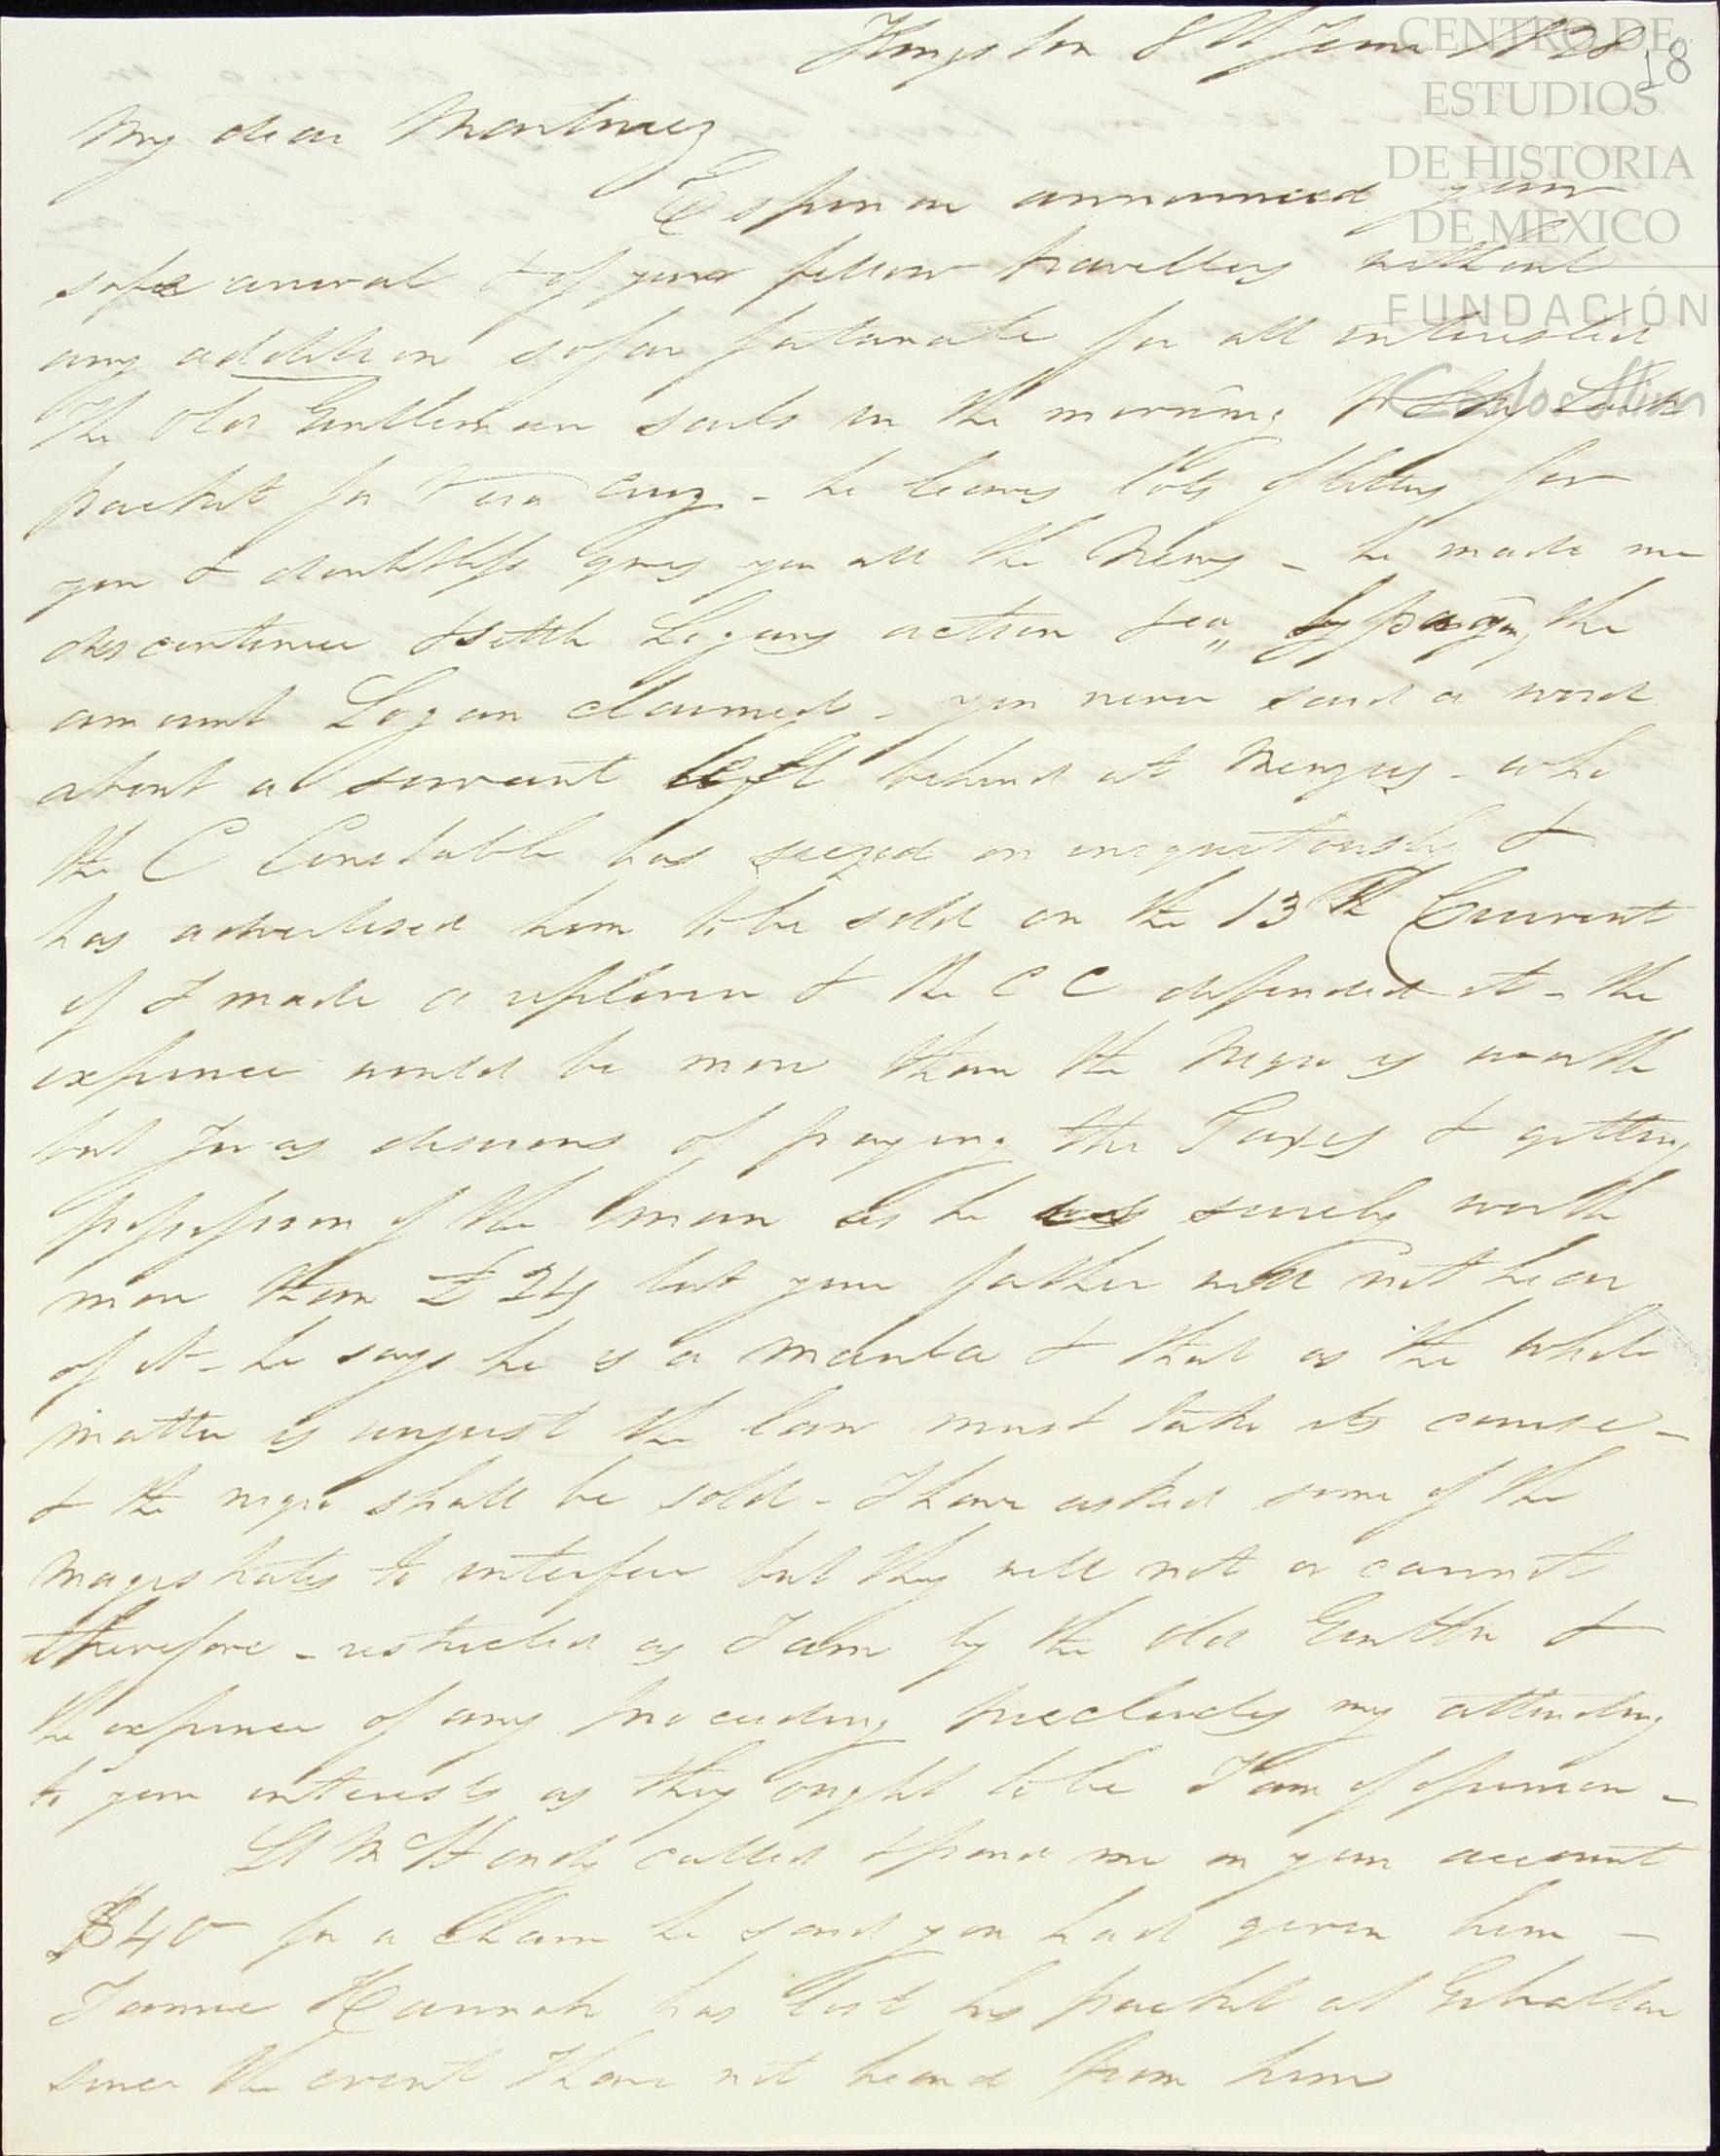 Kingston 8th June 1828
18
CENTRO DE
ESTUDIOS
DE HISTORIA
DE MEXICO
FUNDACIÓN
Carlos Slim
My dear Martinez
Espinar announced your
safe arrival & of your fellow travellers without
any addition so far fortunate for all interested
The Old Gentleman sails in the morning
packet for Vera Cruz - he leaves lots of letters for
you & doubtless gives you all the News - he made me
discontinue & settle Logans action by paying the
amount Logan claimed - you never said a word
about a servant left behind at Menzies - who
the C Constable has seized on iniquitously &
has advertised him to be sold on the 13th Current
if I made a replevin & the C C defended it - the
expence would be more than the Negro is worth
but I was desirous of paying the Taxes & getting
possession of the man as he was surely worth
more than £ but your father will not hear
of it - he says he is a & that as the whole
matter is unjust the law must take its course -
& the negro shall be sold - I have asked some of the
Magistrates to interfere but they will not or cannot
therefore - restricted as I am by the Old Gentln &
the expence of any proceeding precludes my attending
to your interests as they ought to be I am of opinion -
called & paid me on your account
$40 for a he said you had given him -
Jamie Hannah has lost his packet at Gibraltar
since the event I have not heard from him